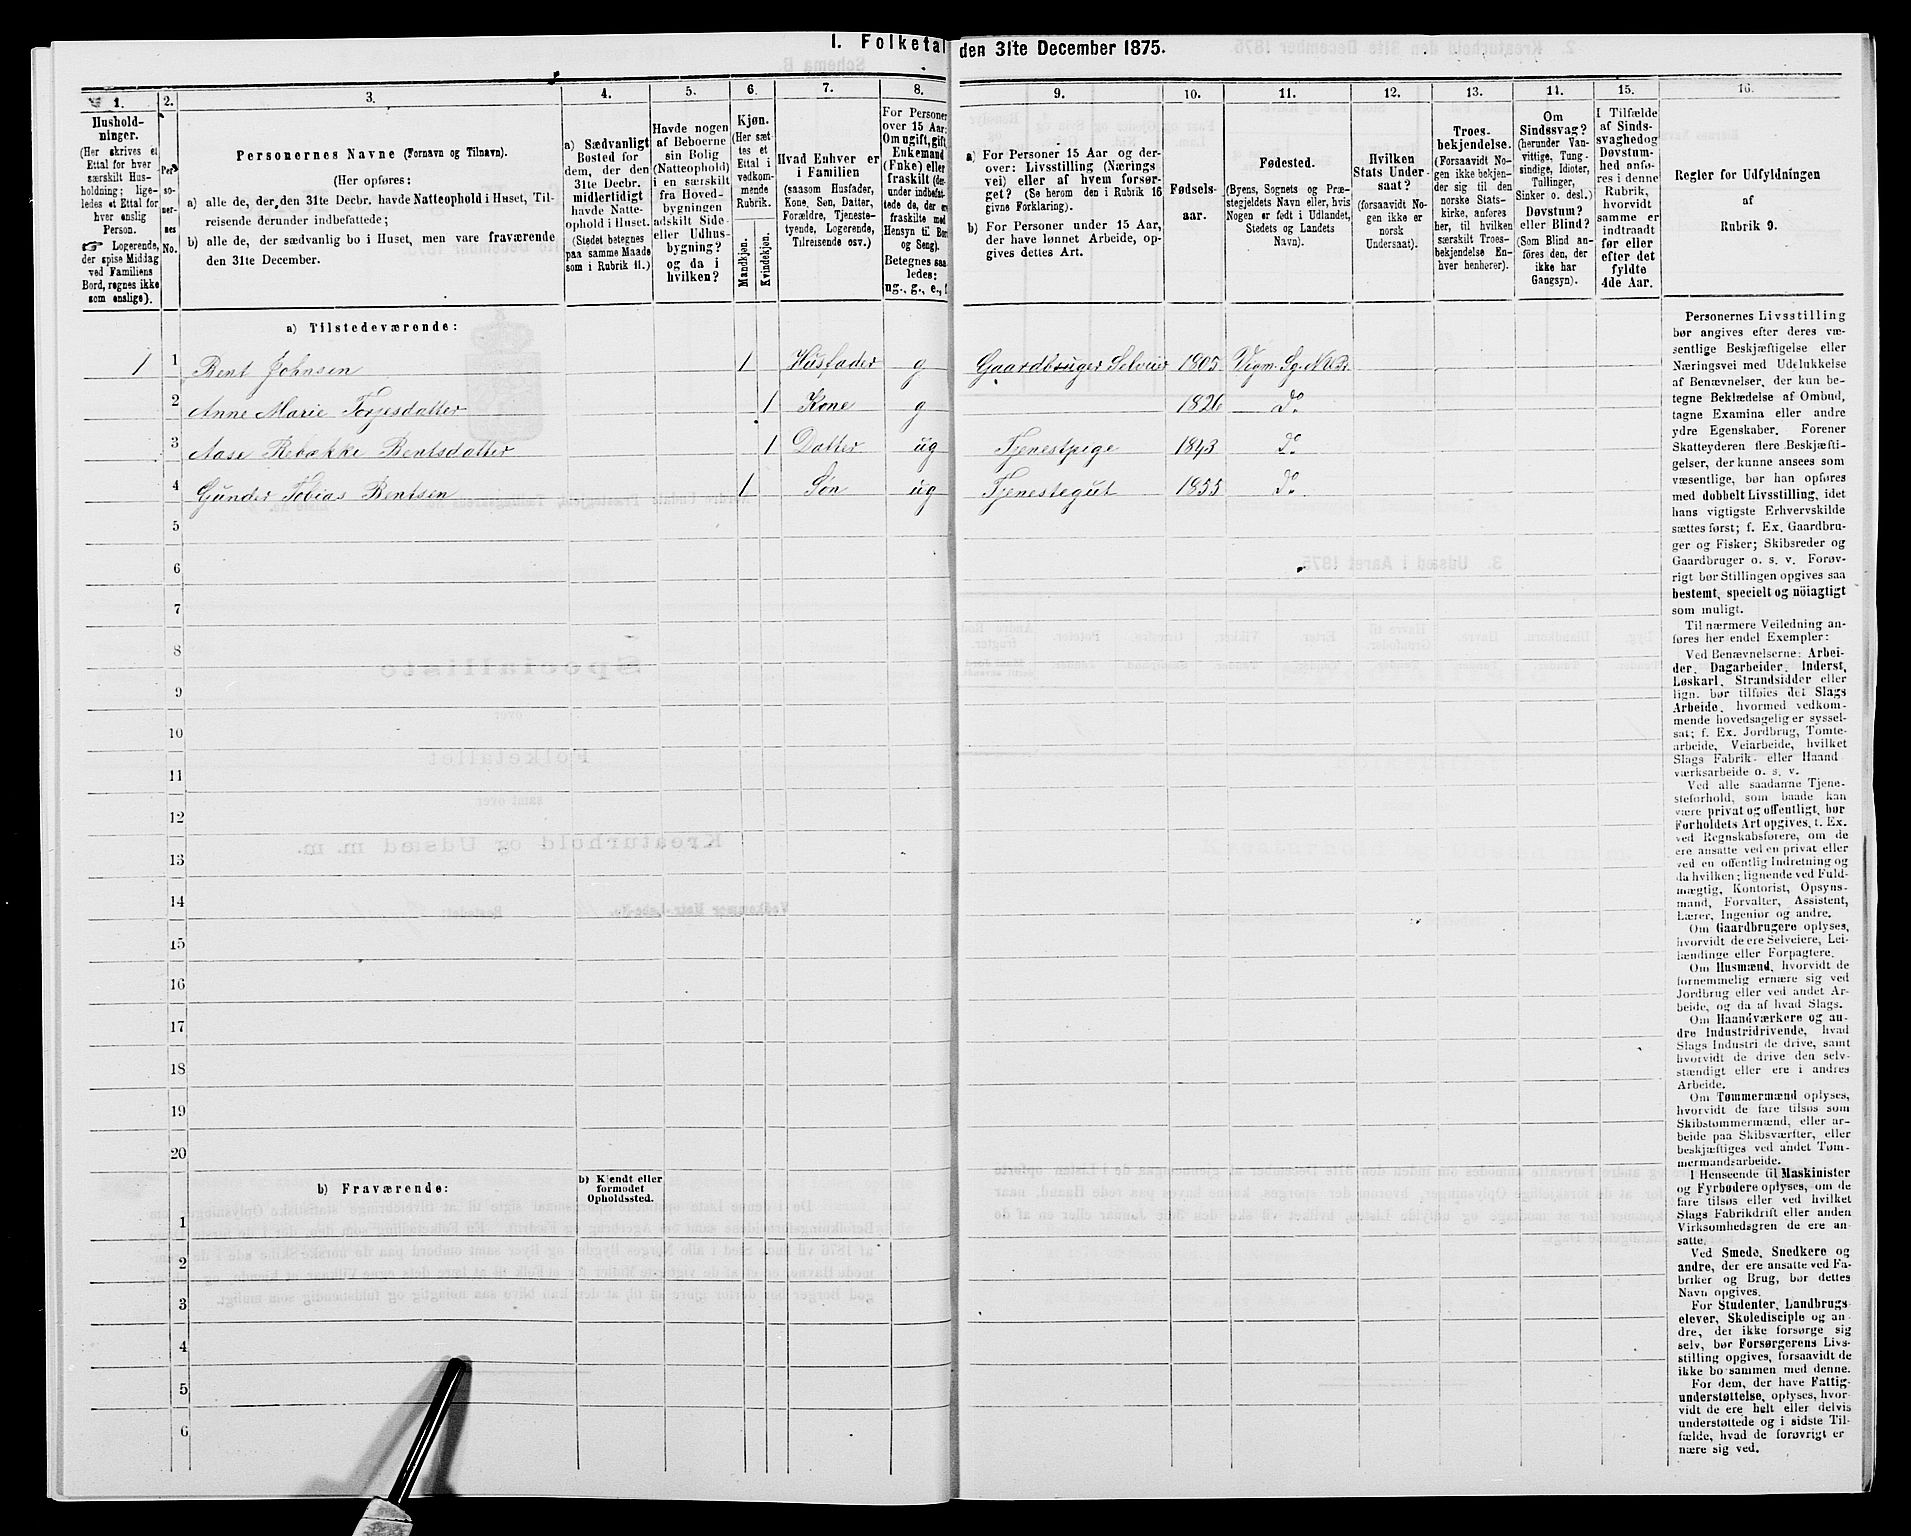 I. Folketal den 31te December 1875.
1. 2. 3. 4. 5. 6. 7. 8. 9. 10. 11. 12. 13. 14. 15. 16.
Hushold-
ninger.
(Her skrives et
Ettal for hver
særskilt Hus-
holdning; lige-
ledes et Ettal for
hver enslig
Person.
☞ Logerende,
der spise Middag
ved Familiens
Bord, regnes ikke
som enslige).
Per-
so-
ner-
nes
No.
Personernes Navne (Fornavn og Tilnavn).
(Her opføres:
a) alle de, der den 31te Decbr. havde Natteophold i Huset, Til-
reisende derunder indbefattede;
b) alle de, der sædvanlig bo i Huset, men vare fraværende
den 31te December.
a) Sædvanligt
Bosted for
dem, der den
31te Decbr.
midlertidigt
havde Natte-
ophold i Huset.
(Stedet betegnes
paa samme Maade
som i Rubrik 11.)
Havde nogen
af Beboerne
sin Bolig
(Natteophold)
i en særskilt
fra Hoved-
bygningen
adskilt Side-
eller Udhus-
bygning?
og da i
hvilken?
Kjøn.
(Her sæt-
tes et
Ettal i
vedkom-
mende
Rubrik.
Mandkjøn.
Kvindekjøn.
Hvad Enhver er
i Familien
(saasom Husfader,
Kone, Søn, Datter,
Forældre, Tjeneste-
tyende, Logerende,
Tilreisende osv.)
For Personer
over 15 Aar:
Om ugift, gift,
Enkemand
(Enke) eller
fraskilt (der-
under indbefat-
tede de, der ere
fraskilte med
Hensyn til Bord
og Seng).
Betegnes saa-
ledes:
ug., g., e., f.
a) For Personer 15 Aar og der-
over: Livsstilling (Nærings-
vei) eller af hvem forsør-
get? (Se herom den i Rubrik 16
givne Forklaring).
b) For Personer under 15 Aar,
der have lønnet Arbeide, op-
gives dettes Art.
Fødsels-
aar.
Fødested.
(Byens, Sognets og Præ-
stegjeldets Navn eller, hvis
Nogen er født i Udlandet,
Stedets og Landets
Navn).
Hvilken
Stats Under-
saat?
(forsaavidt No-
gen ikke er
norsk
Undersaat).
Troes-
bekjendelse.
(Forsaavidt No-
gen ikke bekjen-
der sig til den
norske Stats-
kirke, anføres
her, til hvilken
særskilt Troes-
bekjendelse En-
hver henhører).
Om
Sindssvag?
(herunder Van-
vittige, Tung-
sindige, Idioter,
Tullinger,
Sinker o. desl.)
Døvstum?
eller Blind?
(Som Blind an-
føres den, der
ikke har
Gangsyn).
I Tilfælde
af Sinds-
svaghed og
Døvstum-
hed anfø-
res i denne
Rubrik,
hvorvidt
samme er
indtraadt
før eller
efter det
fyldte
4de Aar.
Regler for Udfyldningen
af
Rubrik 9.
a) Tilstedeværende:
1 1 Bent Johnsen 1 Husfader g Gaardbruger Selveier 1805 Vigm. Sg. N.P.
2 Anne Marie Torjesdatter 1 Kone g 1826 Do
3 Aase Rebække Bentsdatter 1 Datter ug Tjenestpige 1843 Do
4 Gunder Tobias Bentsen 1 Søn ug Tjenestegut 1855 Do
5
6
7
8
9
10
11
12
13
14
15
16
17
18
19
20
b) Fraværende:
b) Kjendt eller
formodet
Opholdssted.
1
2
3
4
5
6
Personernes Livsstilling
bør angives efter deres væ-
sentlige Beskjæftigelse eller
Næringsvei med Udelukkelse
af Benævnelser, der kun be-
tegne Beklædelse af Ombud,
tagne Examina eller andre
ydre Egenskaber. Forener
Skatteyderen flere Beskjæfti-
gelser, der kunne ansees som
væsentlige, bør han opføres
med dobbelt Livsstilling, idet
hans vigtigste Erhvervskilde
sættes først; f. Ex. Gaardbru-
ger og Fisker; Skibsreder og
Gaardbruger o. s. v. Forøv-
rigt bør Stillingen opgives saa
bestemt, specielt og nöiagtigt
som muligt.
Til nærmere Veiledning an-
føres her endel Exempler:
Ved Benævnelserne: Arbei-
der, Dagarbeider, Inderst,
Løskarl, Strandsidder eller
lign. bør tilføies det Slags
Arbeide, hvormed vedkom-
mende hovedsagelig er syssel-
sat; f. Ex. Jordbrug, Tømte-
arbeide, Veiarbeide, hvilket
Slags Fabrik- eller Haand-
værksarbeide o. s. v.
Ved alle saadanne Tjene-
steforhold, som baade kan
være privat og offentligt, bør
Forholdets Art opgives, f. Ex.
ved Regnskabsførere, om de
ere ansatte ved en privat eller
ved en offentlig Indretning og
da hvilken; lignende ved Fuld-
mægtig, Kontorist, Opsyns-
mand, Forvalter, Assistent,
Lærer, Ingeniør og andre.
Om Gaardbrugere oplyses,
hvorvidt de ere Selveiere, Lei-
lændinge eller Forpagtere.
Om Husmænd, hvorvidt de
fornemmelig ernære sig ved
Jordbrug eller ved andet Ar-
beide, og da af hvad Slags.
Om Haandværkere og an-
dre Industridrivende, hvad
Slags Industri de drive, samt
hvorvidt de drive den selv-
stændigt eller ere i andres
Arbeide.
Om Tømmermænd oplyses,
hvorvidt de fare tilsøs som
Skibstømmermænd, eller ar-
beide paa Skibsværfter, eller
beskjæftiges ved andet Tøm-
mermandsarbeide.
I Henseende til Maskinister
og Fyrbødere oplyses, om de
fare tilsøs eller ved hvilket
Slags Fabrikdrift eller anden
Virksomhedsgren de ere an-
satte.
Ved Smede, Snedkere og
andre, der ere ansatte ved Fa-
briker og Brug, bør dettes
Navn opgives.
For Studenter, Landbrugs-
elever, Skoledisciple og an-
dre, der ikke forsørge sig
selv, bør Forsørgerens Livs-
stilling opgives, forsaavidt de
ikke bo sammen med denne.
For dem, der have Fattig-
understøttelse, oplyses, hvor-
vidt de ere helt eller delvis
understøttede og i sidste Til-
fælde, hvad de forøvrigt er-
nære sig ved.